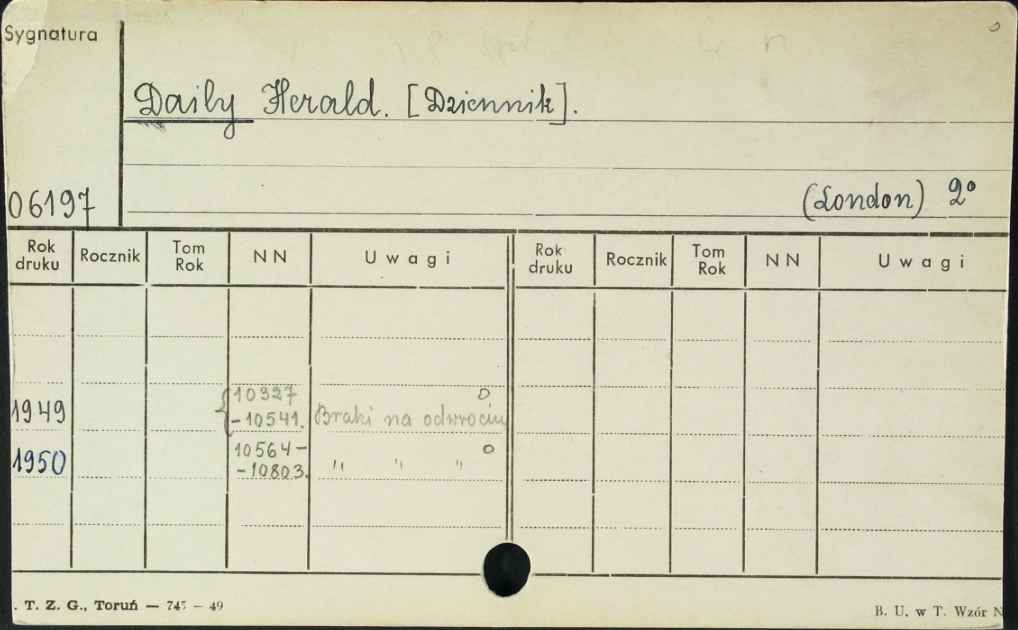 Sygnatura
Daily Herald. [Dziennik].
06197
(London) 2°
Rok druku Rocznik Tom Rok NN Uwagi Rok druku Rocznik Tom Rok NN Uwagi
10327
1949 -10541. Braki na odwrociu
10564-
1950 -10803. " " "
. T. Z. G., Toruń — 745 — 49
B. U. w T. Wzór N